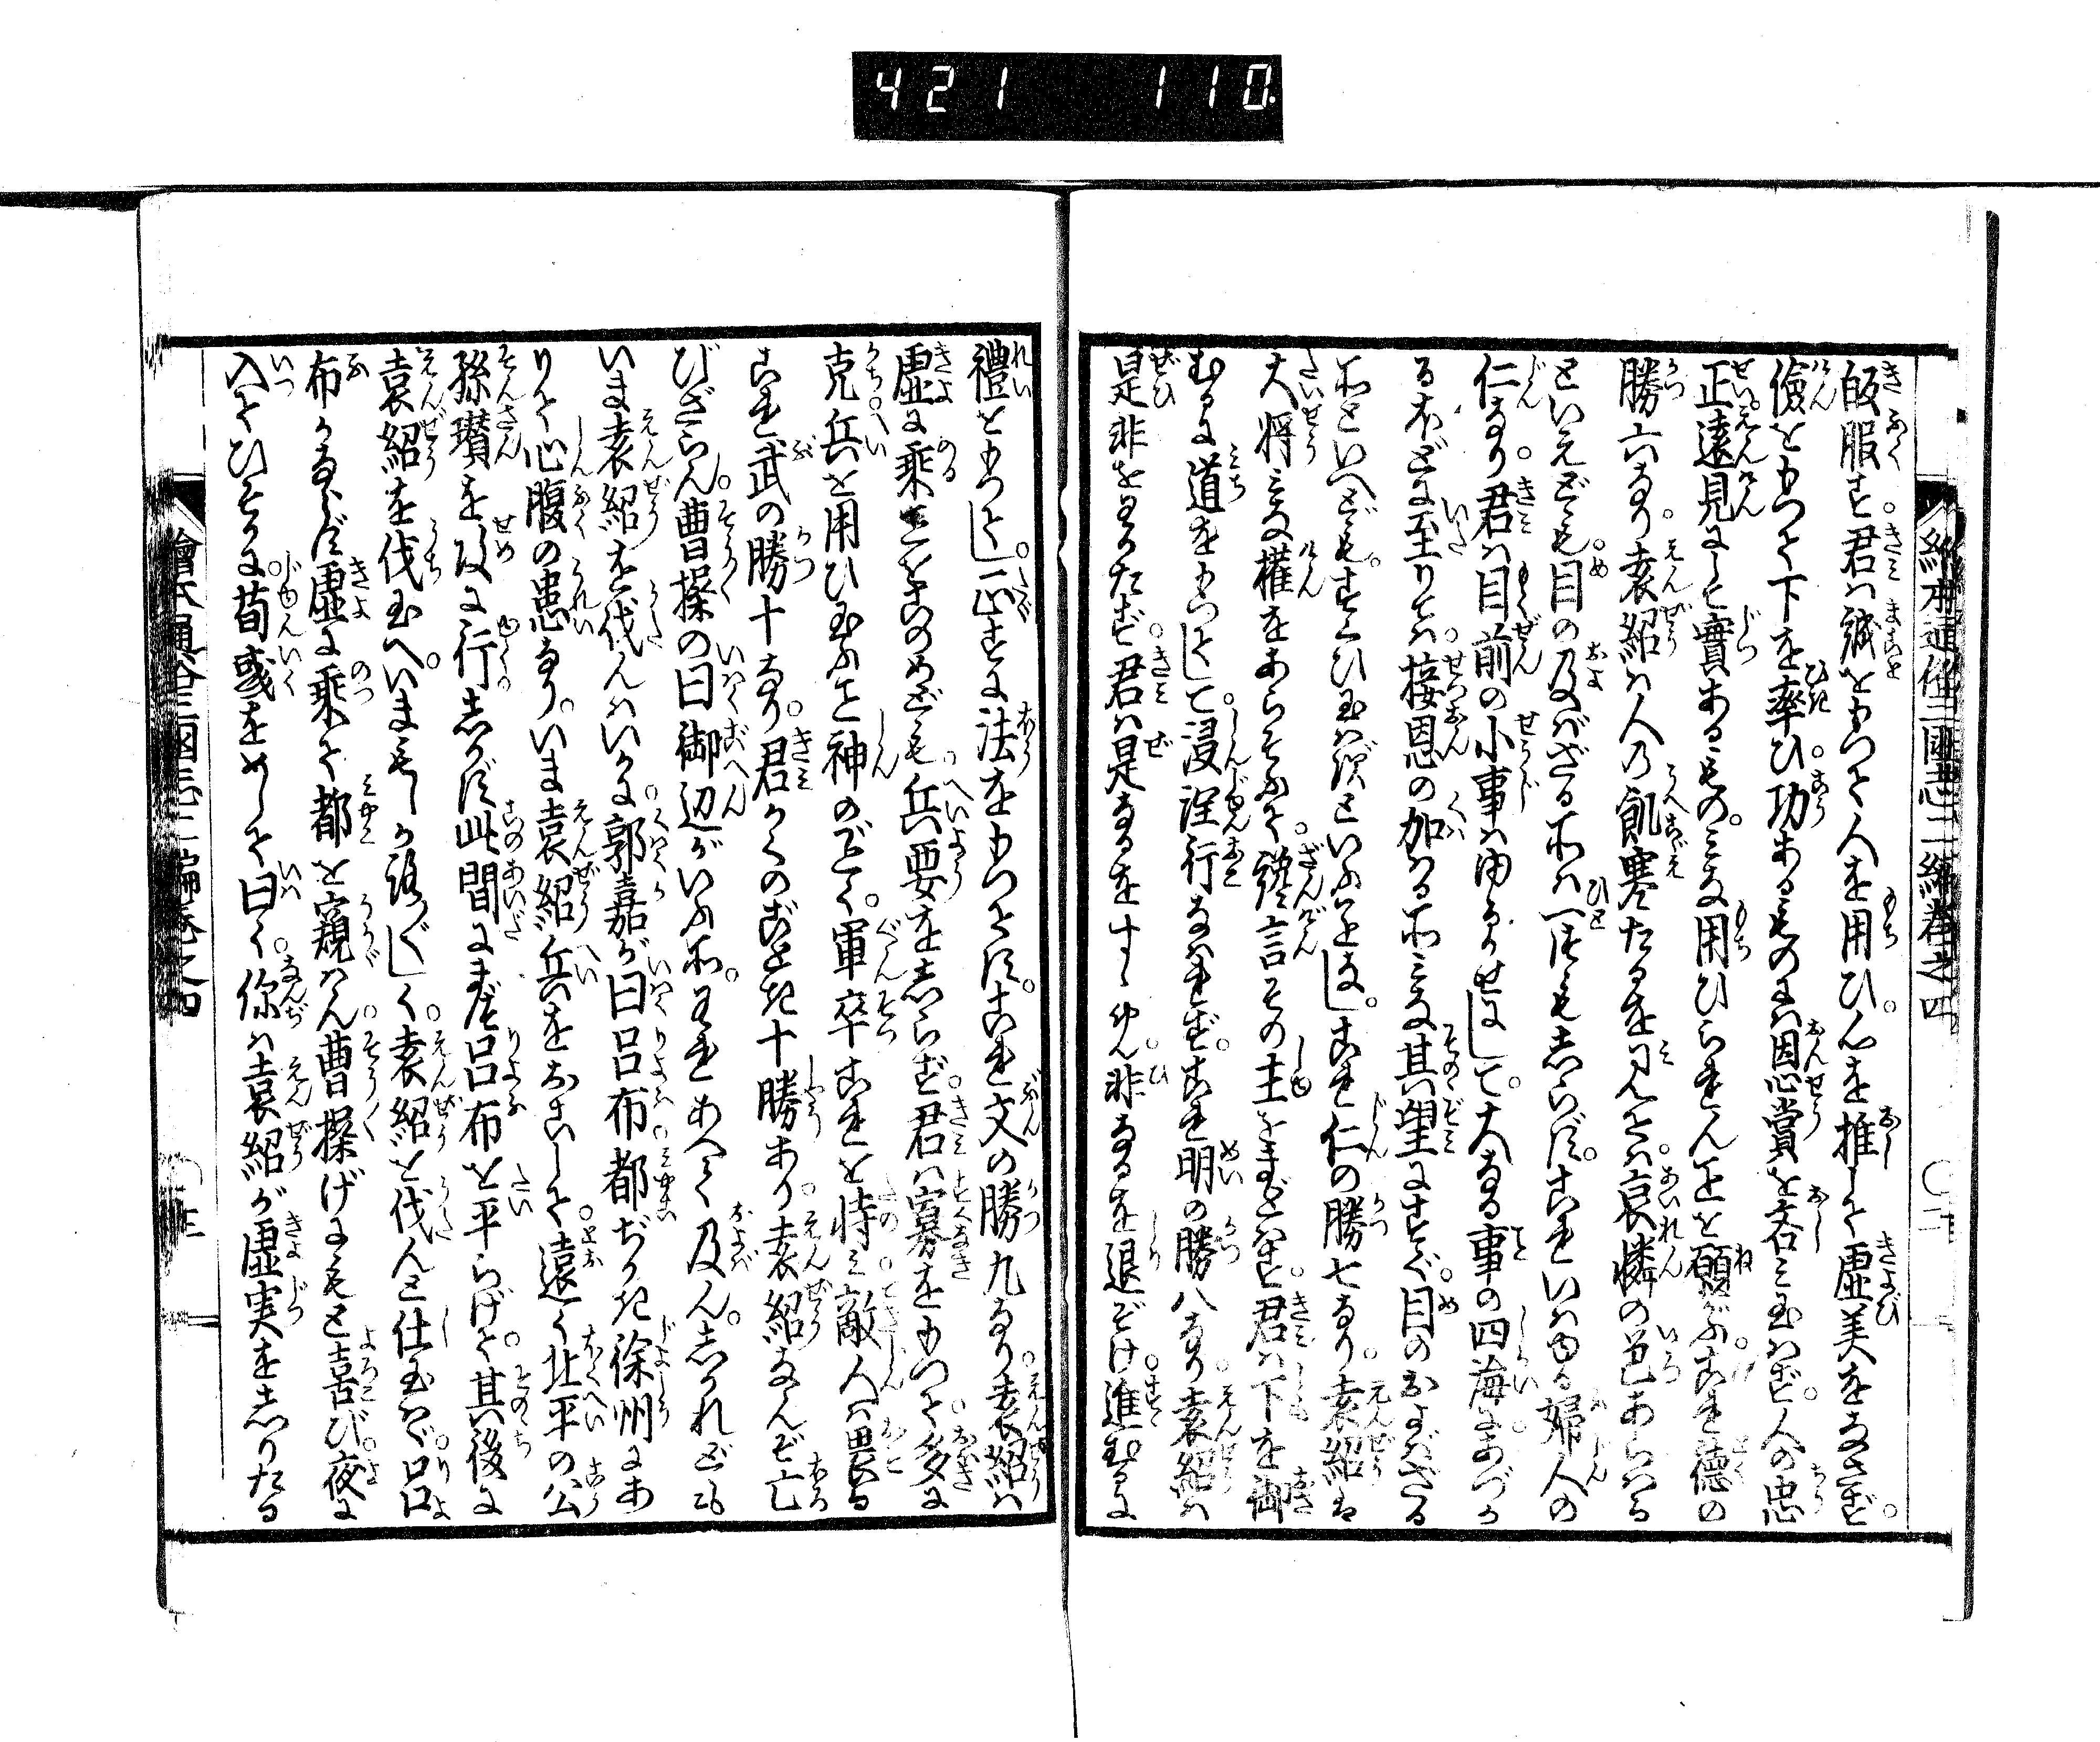 421 110.
繪本通俗三國志二編卷之四
皈服す。君は誠をもつて人を用ひ。心を推して虚美をなさず。
儉をもつて下を率ひ。功あるものには恩賞を吝み玉はず。人の忠
正遠見にして實あるもの。みな用ひられんことを願ふ。これ德の
勝六なり。袁紹は人の飢寒たるを見ては。哀憐の色あらはる
といえども。目の及ばざる所は一つも志らず。これいはゆる婦人の
仁なり。君は目前の小事はゆるがせにして。大なる事の四海にあづか
るほどに至りては。接恩の加はる所みな其望にすぐ。目のおよばざる
所といへども。すくひ玉はずといふことなし。これ仁の勝七なり。袁紹は
大将みな權をあらそふて。讒言その主をまどはす。君は下を御
むるに道をもつてして。浸淫行なはれず。これ明の勝八なり。袁紹は
是非をわかたず。君は是なるをすゝめ。非なるを退ぞけ。進むるに
禮をもつてし。正すに法をもつてす。これ文の勝九なり。袁紹は
虚に乘ことをこのめども。兵要を志らず。君は寡をもつて多に
克。兵を用ひ玉ふこと神のごとく。軍卒これを恃み。敵人は畏る
これ武の勝十なり。君かくのごとき十勝あり。袁紹なんぞ亡
びざらん。曹操の曰御辺がいふ所。われあへて及ん。志かれども
いま袁紹を伐んはいかに。郭嘉が曰呂布都ぢかき徐州にあ
りて心腹の患なり。いま袁紹兵をおこして。遠く北平の公
孫瓚を攻に行志かず此間にまづ呂布を平らげて。其後に
袁紹を伐玉へ。いまもしか路ぐしく。袁紹を伐んと仕玉はゞ。呂
布かならず虚に乘て都を窺はん。曹操げにもと喜び。夜に
入てひそかに。荀彧をめして曰く。你は袁紹が虚実を志りたる
繪本通俗三國志二編卷之四